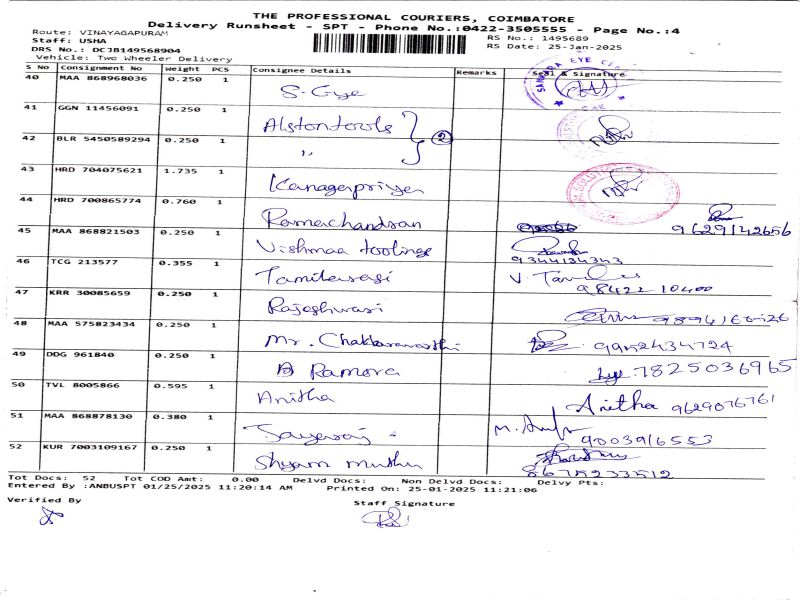 THE PROFESSIONAL COURIERS, COIMBATORE
Delivery Runsheet - SPT - Phone No.:0422-3505555 - Page No.:4
Route: VINAYAGAPURAM
RS No.: 1495689
Staff: USHA
RS Date: 25-Jan-2025
DRS No.: DCJB149568904
Vehicle: Two Wheeler Delivery
S No Consignment No Weight PCS Consignee Details Remarks Seal & Signature
40 MAA 868968036 0.250 1 S. Eye
41 GGN 11456091 0.250 1 Alston tools
42 BLR 5450589294 0.250 1 " 2
43 HRD 704075621 1.735 1 Kanagapriya
44 HRD 700865774 0.760 1 Ramachandran 9629142656
45 MAA 868821503 0.250 1 Vishmaa toolings 9344134343
46 TCG 213577 0.355 1 Tamilarasi 9842210400
47 KRR 30085659 0.250 1 Rajeshwari
48 MAA 575823434 0.250 1 Mr. Chakkaravarthi 9952434724
49 DDG 961840 0.250 1 Ramora 7825036965
50 TVL 8005866 0.595 1 Anitha Anitha 9629076761
51 MAA 868878130 0.380 1 9003916553
52 KUR 7003109167 0.250 1 Shyam muthu
Tot Docs: 52 Tot COD Amt: 0.00 Delvd Docs: Non Delvd Docs: Delvy Pts:
Entered By :ANBUSPT 01/25/2025 11:20:14 AM Printed On: 25-01-2025 11:21:06
Verified By
Staff Signature